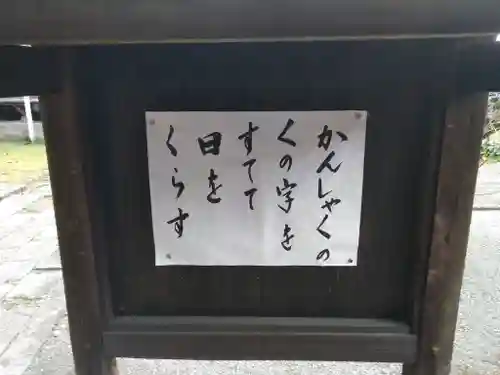 かんしゃくの
くの字を
すてて
日を
くらす